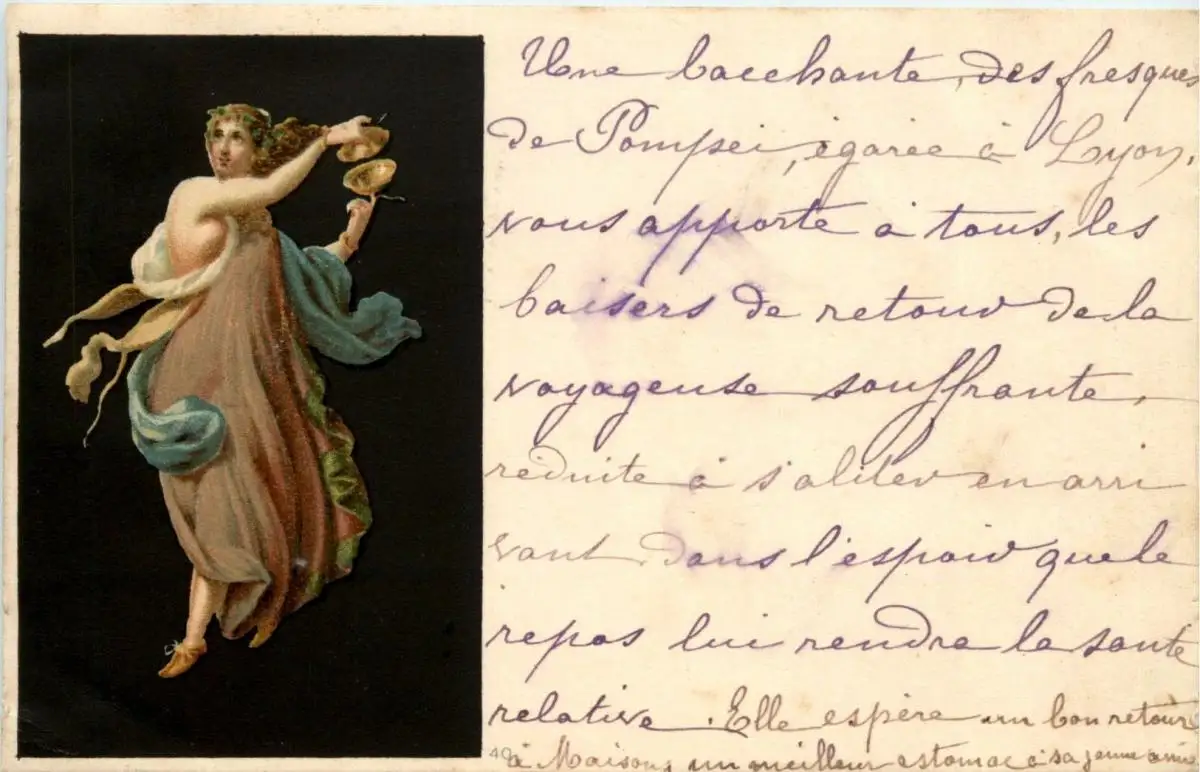 Une bacchante, des fresques
de Pompei, égarée à Lyon,
vous apporte à tous, les
baisers de retour de la
voyageuse souffrante,
réduite à s'aliter en arri
vant dans l'espoir que le
repos lui rendra la santé
relative. Elle espère un bon retour
à Maisons, un meilleur estomac à sa jeune amie